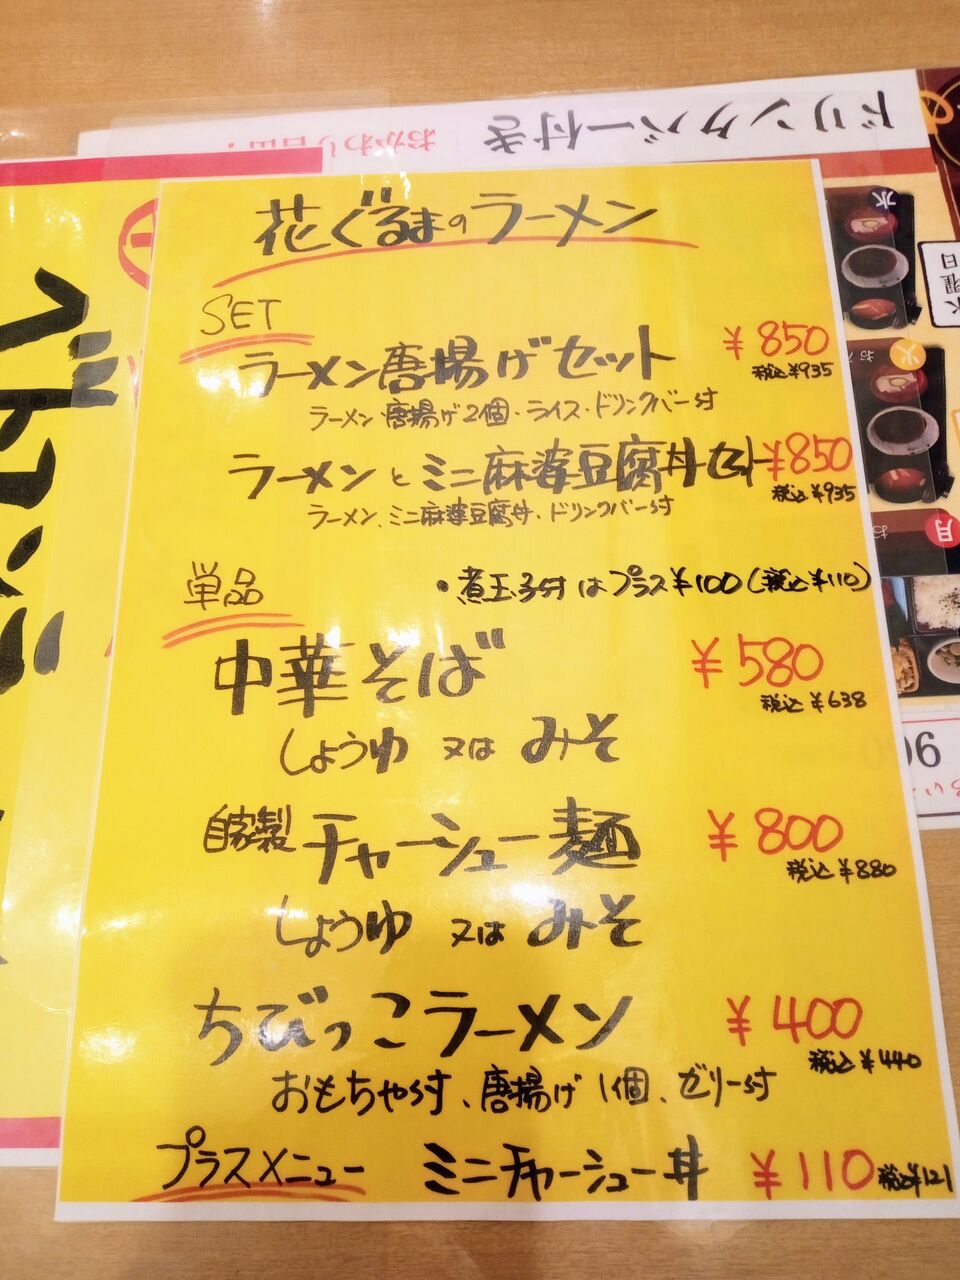 ドリンクバー付き
おかわり自由！
花ぐるまのラーメン
SET
ラーメン唐揚げセット ¥850
税込¥935
ラーメン・唐揚げ2個・ライス・ドリンクバー付
ラーメンとミニ麻婆豆腐丼セット ¥850
税込¥935
ラーメン、ミニ麻婆豆腐丼、ドリンクバー付
単品
・煮玉子付はプラス¥100(税込¥110)
中華そば ¥580
税込¥638
しょうゆ 又は みそ
自家製 チャーシュー麺 ¥800
税込¥880
しょうゆ 又は みそ
ちびっこラーメン ¥400
税込¥440
おもちゃ付、唐揚げ1個、ゼリー付
プラスメニュー ミニチャーシュー丼 ¥110 税込¥121
水
水曜日
火
月